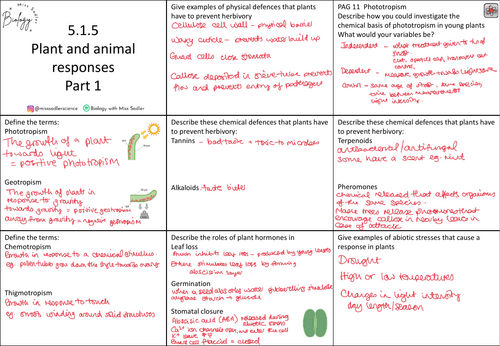 Miss Sadler
Biology
5.1.5
Plant and animal
responses
Part 1
@missadlerscience
Biology with Miss Sadler
Give examples of physical defences that plants
have to prevent herbivory
Cellulose cell wall - physical barrier
Waxy cuticle - prevents water build up
Guard cells close stomata
Callose deposited in sieve tube prevents
flow and prevents entry of pathogen
PAG 11 Phototropism
Describe how you could investigate the
chemical basis of phototropism in young plants
What would your variables be?
Independent - what treatment given to tip of
shoot
control
Dependent - measure growth
Control - same age of shoot, same species,
time between measurements
light intensity
Define the terms:
Phototropism
The growth of a plant
towards light
= positive phototropism
Geotropism
The growth of plants in
response to gravity
towards gravity = positive geotropism
away from gravity = negative geotropism
Describe these chemical defences that plants
have to prevent herbivory:
Tannins - bad taste + toxic to microbes
Alkaloids taste bitter
Describe these chemical defences that plants
have to prevent herbivory:
Terpenoids
antibacterial/antifungal
some have a scent eg. mint
Pheromones
chemical released that affects organisms
of the same species.
Maple trees release pheromone that
encourage callose in nearby leaves in
case of attack
Define the terms:
Chemotropism
Growth in response to a chemical stimulus
eg. pollen tube grow down the style towards ovary
Thigmotropism
Growth in response to touch
eg. shoots winding around solid structures
Describe the roles of plant hormones in
Leaf loss
Auxin inhibits leaf loss - produced by young leaves
Ethene stimulates leaf loss by forming
abscission layer
Germination
when a seed absorbs water gibberellins stimulate
amylase starch → glucose
Stomatal closure
Abscisic acid (ABA) released during
abiotic stress
Ca²⁺ ion channels open and enter the cell
K⁺ leave
Guard cell flaccid = closed
Give examples of abiotic stresses that cause a
response in plants
Drought
High or low temperatures
Changes in light intensity
day length/season